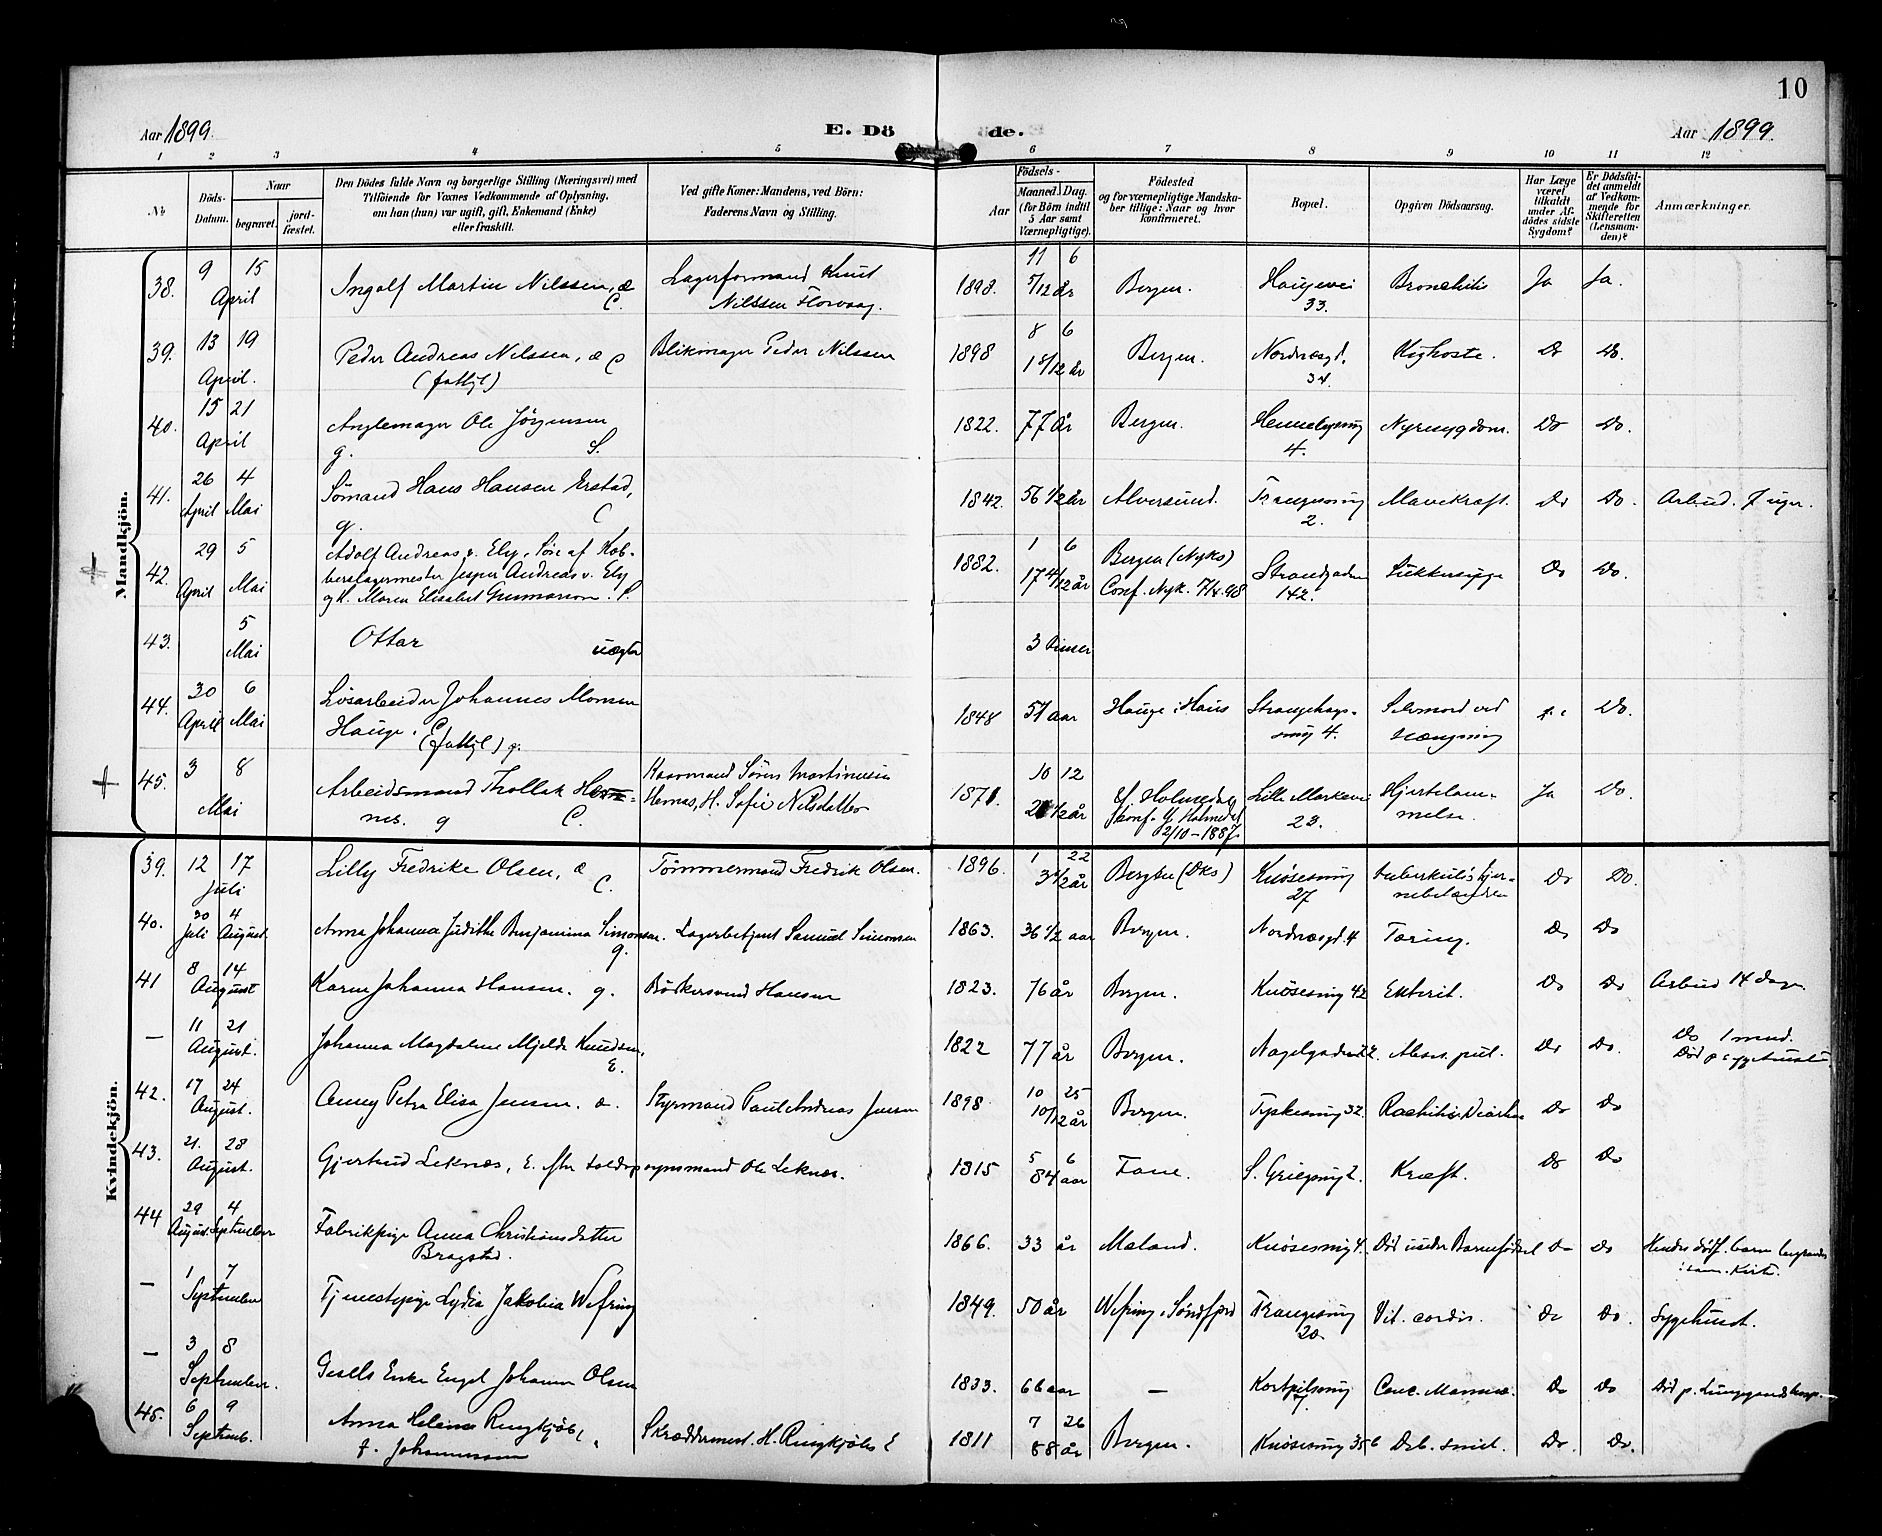 10
Aar 1899.
E. Dö de.
Aar 1899.
1 2 3 4 5 6 7 8 9 10 11 12
№
Döds-
Datum.
Naar
begravet.
jord-
fæstet.
Den Dödes fulde Navn og borgerlige Stilling (Næringsvei) med
Tilföiende for Voxnes Vedkommende af Oplysning,
om han (hun) var ugift, gift, Enkemand (Enke)
eller fraskilt.
Ved gifte Koner: Mandens, ved Börn:
Faderens Navn og Stilling.
Födsels-
Aar
Maaned. Dag.
(for Börn indtil
5 Aar samt
Værnepligtige).
Födested
og for værnepligtige Mandska-
ber tillige: Naar og hvor
konfirmeret.
Bopæl.
Opgiven Dödsaarsag.
Har Læge
været
tilkaldt
under Af-
dödes sidste
Sygdom?
Er Dödsfal-
det anmeldt
af Vedkom-
mende for
Skifteretten
(Lensman-
den)?
Anmærkninger.
Mandkjön.
38. 9 15 April Ingolf Martin Nilssen, æ C. Lagerformand Knut
Nilssen Florvaag. 1898. 11 6 5/12 år Bergen. Haugevei
33. Bronchitis Ja Ja.
39. 13 19 April. Peder Andreas Nilssen, æ C
(fattigl) Blikmager Peder Nilssen 1898 8 6 1 8/12 år Bergen. Nordnæsgd.
34. Kighoste. Do Do.
40. 15 21 April Anglemager Ole Jörgensen
g. S. 1822. 77 år Bergen. 4. Nyresygdom. Do Do.
41. 26 4 April Mai Sömand Hans Hansen Erstad,
g. C 1842. 56 1/2 år Alversund. Trangesmug
2. Mavekræft. Do Do. Arbud. 7 uger.
42. 29 5 April Mai Adolf Andreas v. Ely, Sön af Kob-
berslagermester Jesper Andreas v. Ely
og H. Maren Elisabet Gunnarson. S. 1882. 1 6 17 4/12 år Bergen (Nyks)
Conf. Nyk. 98 Strandgaden
142. Sukkersyge Do Do.
43. 5 Mai Ottar uægte 3 timer
44. 30 6 April Mai Lösarbeider Johannes Monsen
Hauge. C
(fattigl) g. 1848 51 aar Hauge i Haus Strangehags-
smug 4. Selvmord ved
Hængning Do.
45. 3 8 Mai Arbeidsmand Thollak Her-
nes. g C. Kaarmand Sörens Martinusen
Hernes, H. Sofie Nilsdatter 1871. 10 12 1/2 år Y. Holmedal
Conf. Y Holmedal
2/10-1887. Lille Markevei
23. Hjertelam-
melse. Ja Do.
Kvindekjön.
39. 12 17 Juli Lilly Fredrike Olsen, æ
C. Tömmermand Fredrik Olsen. 1896. 1 22 3 1/2 år Bergen (Dks) Knösesmug
27 Do Do.
40. 30 4 Juli August Anna Johanna Judithe Benjamina Simonsen.
g. Lagerbetjent Samuel Simonsen 1863. 36 1/2 aar Bergen. Nordnæsgd. 4 Tæring. Do Do
41 8 14 August Karen Johanna Hansen. g. Bödkersvend Hansen 1823. 76 år Bergen. Knösesmug 42 Enterit. Do Do Arbud 14 dage
— 11 21 August. Johanna Magdalene Mjelde Knudsen.
E. 1822 77 år Bergen. Nagelgaden Absc. pul. Do Do. Do 1 mnd.
42. 17 24 August. Anny Petra Elisa Jensen. æ. Styrmand Paul Andreas Jensen 1898 10 25 10/12 år Bergen. Tyskesmug 32. Rachitis Do Do
43. 21. 28 August. Gjertrud Leknæs, E. efter toldopsynsmand Ole Leknæs. 1815 5 6 84 aar Fane. S. Griegsmug 2. Kræft. Do Do
44 29 4 August September Fabrikpige Anna Christiansdatter
Bragstad. 1866. 33 år Maland. Knösesmug 4. Död under Barnefödsel Do Do Hendes döff. barn begravedes
i sam. Kiste.
— 1 7 September Tjenestepige Lydia Jakobia Wefring 1849. 50 år Wefring i Söndfjord Trangesmug
20. Vit. cordis. Do Do. Sygehuset.
— 3 8 September. Gesells Enke Engel Johanne Olsen 1833. 66 aar — Kortpilsmug
7. Canc. Mammæ. Do Do Död p. Lunggaardshosp.
45. 6 9 Septemb. Anna Helene Ringkjöb,
f. Johannessen Skræddermest. H. Ringkjöbs E 1811 7 26 88 år Bergen. Knösesmug 35 b Deb. senil. Do. Do.